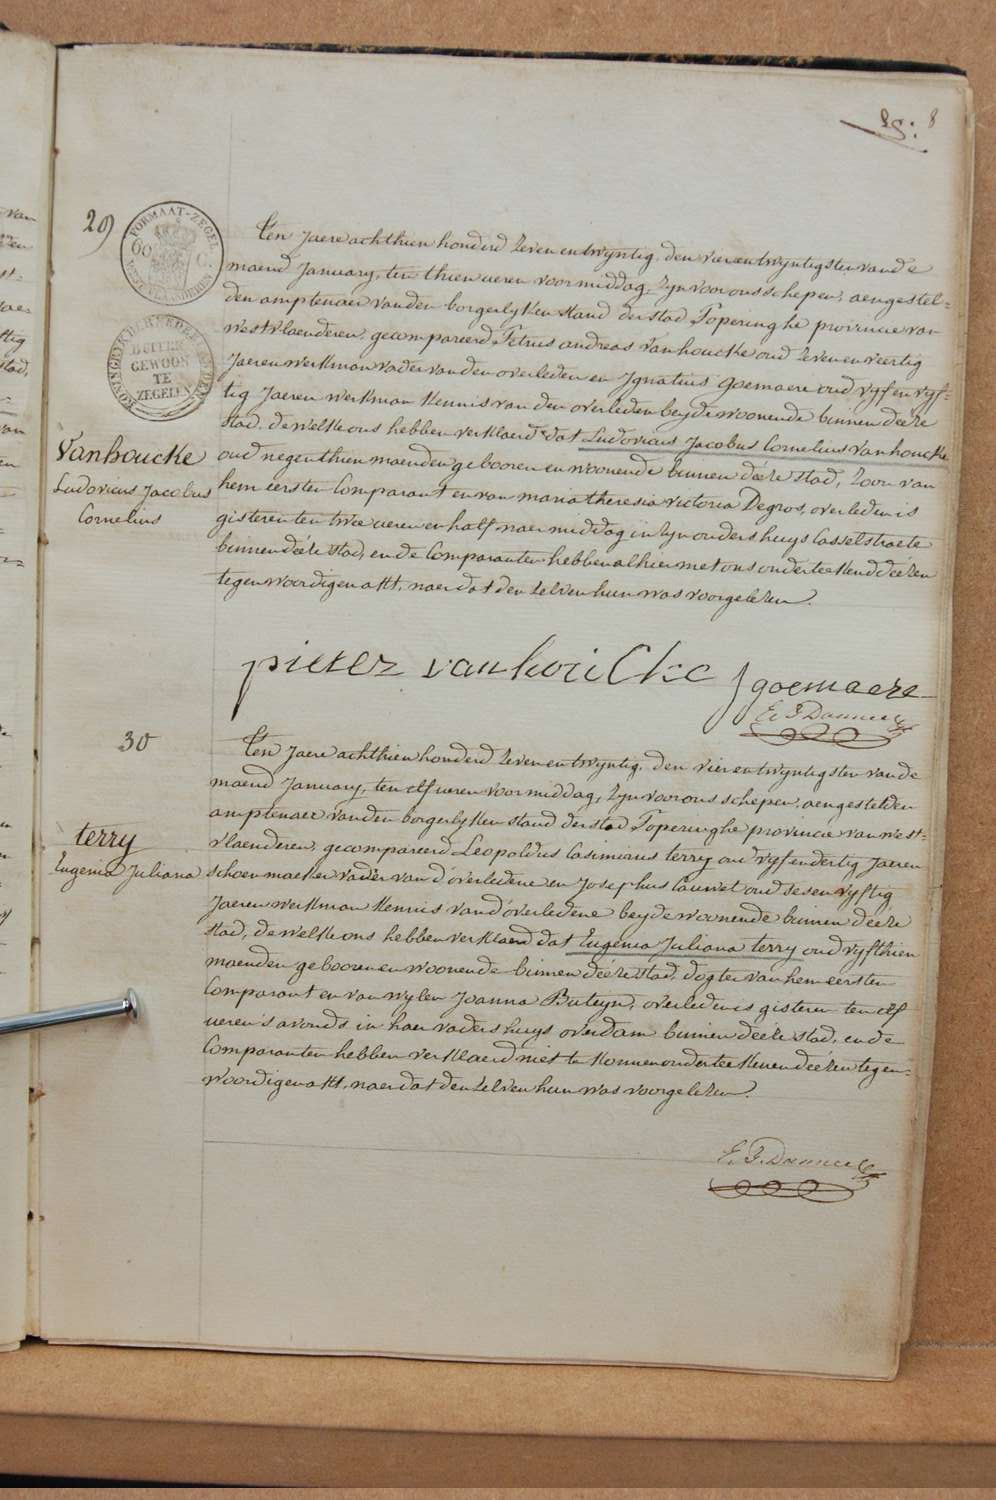 8
29
FORMAAT-ZEGEL
60 C.
WEST-VLAANDEREN
KONINGRYK DER NEDERLANDEN
BUITEN
GEWOON
TE
ZEGELEN
Ten Jaere achthien honderd zeven en twyntig, den vier en twyntigsten van de
maend January, ten thien ueren voormiddag, zyn voor ons schepen, aengestel-
den amptenaer van den borgerlyken stand der stad Poperinghe provincie van
westvlaenderen, gecompareerd, Petrus andreas Vanhoucke oud zeven en veertig
Jaeren werkman vader van den overleden en Ignatius Goemaere oud vyf en vyf-
tig Jaeren werkman kennis van den overleden beyde woonende binnen deéze
stad, de welke ons hebben verklaerd dat Ludovicus Jacobus Cornelius Vanhoucke
oud negenthien maenden gebooren en woonende binnen deéze stad, zoon van
hem eersten Comparant en van maria theresia victoria Degros, overleden is
gisteren ten twee ueren en half naermiddag in zyn ouders huys Casselstraete
binnen deéze stad, en de Comparanten hebben alhier met ons onderteekend deézen
tegenwoordigen akt, naer dat den zelven hun was voorgelezen.
Vanhoucke
Ludovicus Jacobus
Cornelius
pieter vanhoucke
J goemaere
30
Ten Jaere achthien honderd zeven en twyntig, den vier en twyntigsten van de
maend January, ten elf ueren voormiddag, zyn voor ons schepen, aengestelden
amptenaer van den borgerlyken stand der stad Poperinghe provincie van west-
vlaenderen, gecompareerd Leopoldus Casimirus terry oud vyf en dertig Jaeren
schoenmaeker vader van d'overledene en Josephus Cauwet oud sesen vyftig
Jaeren werkman kennis van d'overledene beyde woonende binnen deéze
stad, de welke ons hebben verklaerd dat Eugenia Juliana terry oud vyfthien
maenden gebooren en woonende binnen deéze stad, dogter van hem eersten
Comparant en van wylen Joanna Bateyn, overleden is gisteren ten elf
ueren s'avonds in haer vaders huys overdam binnen deéze stad, en de
Comparanten hebben verklaerd niet te konnen onderteekenen deézen tegen-
woordigen akt, naer dat den zelven hun was voorgelezen.
terry
Eugenia Juliana